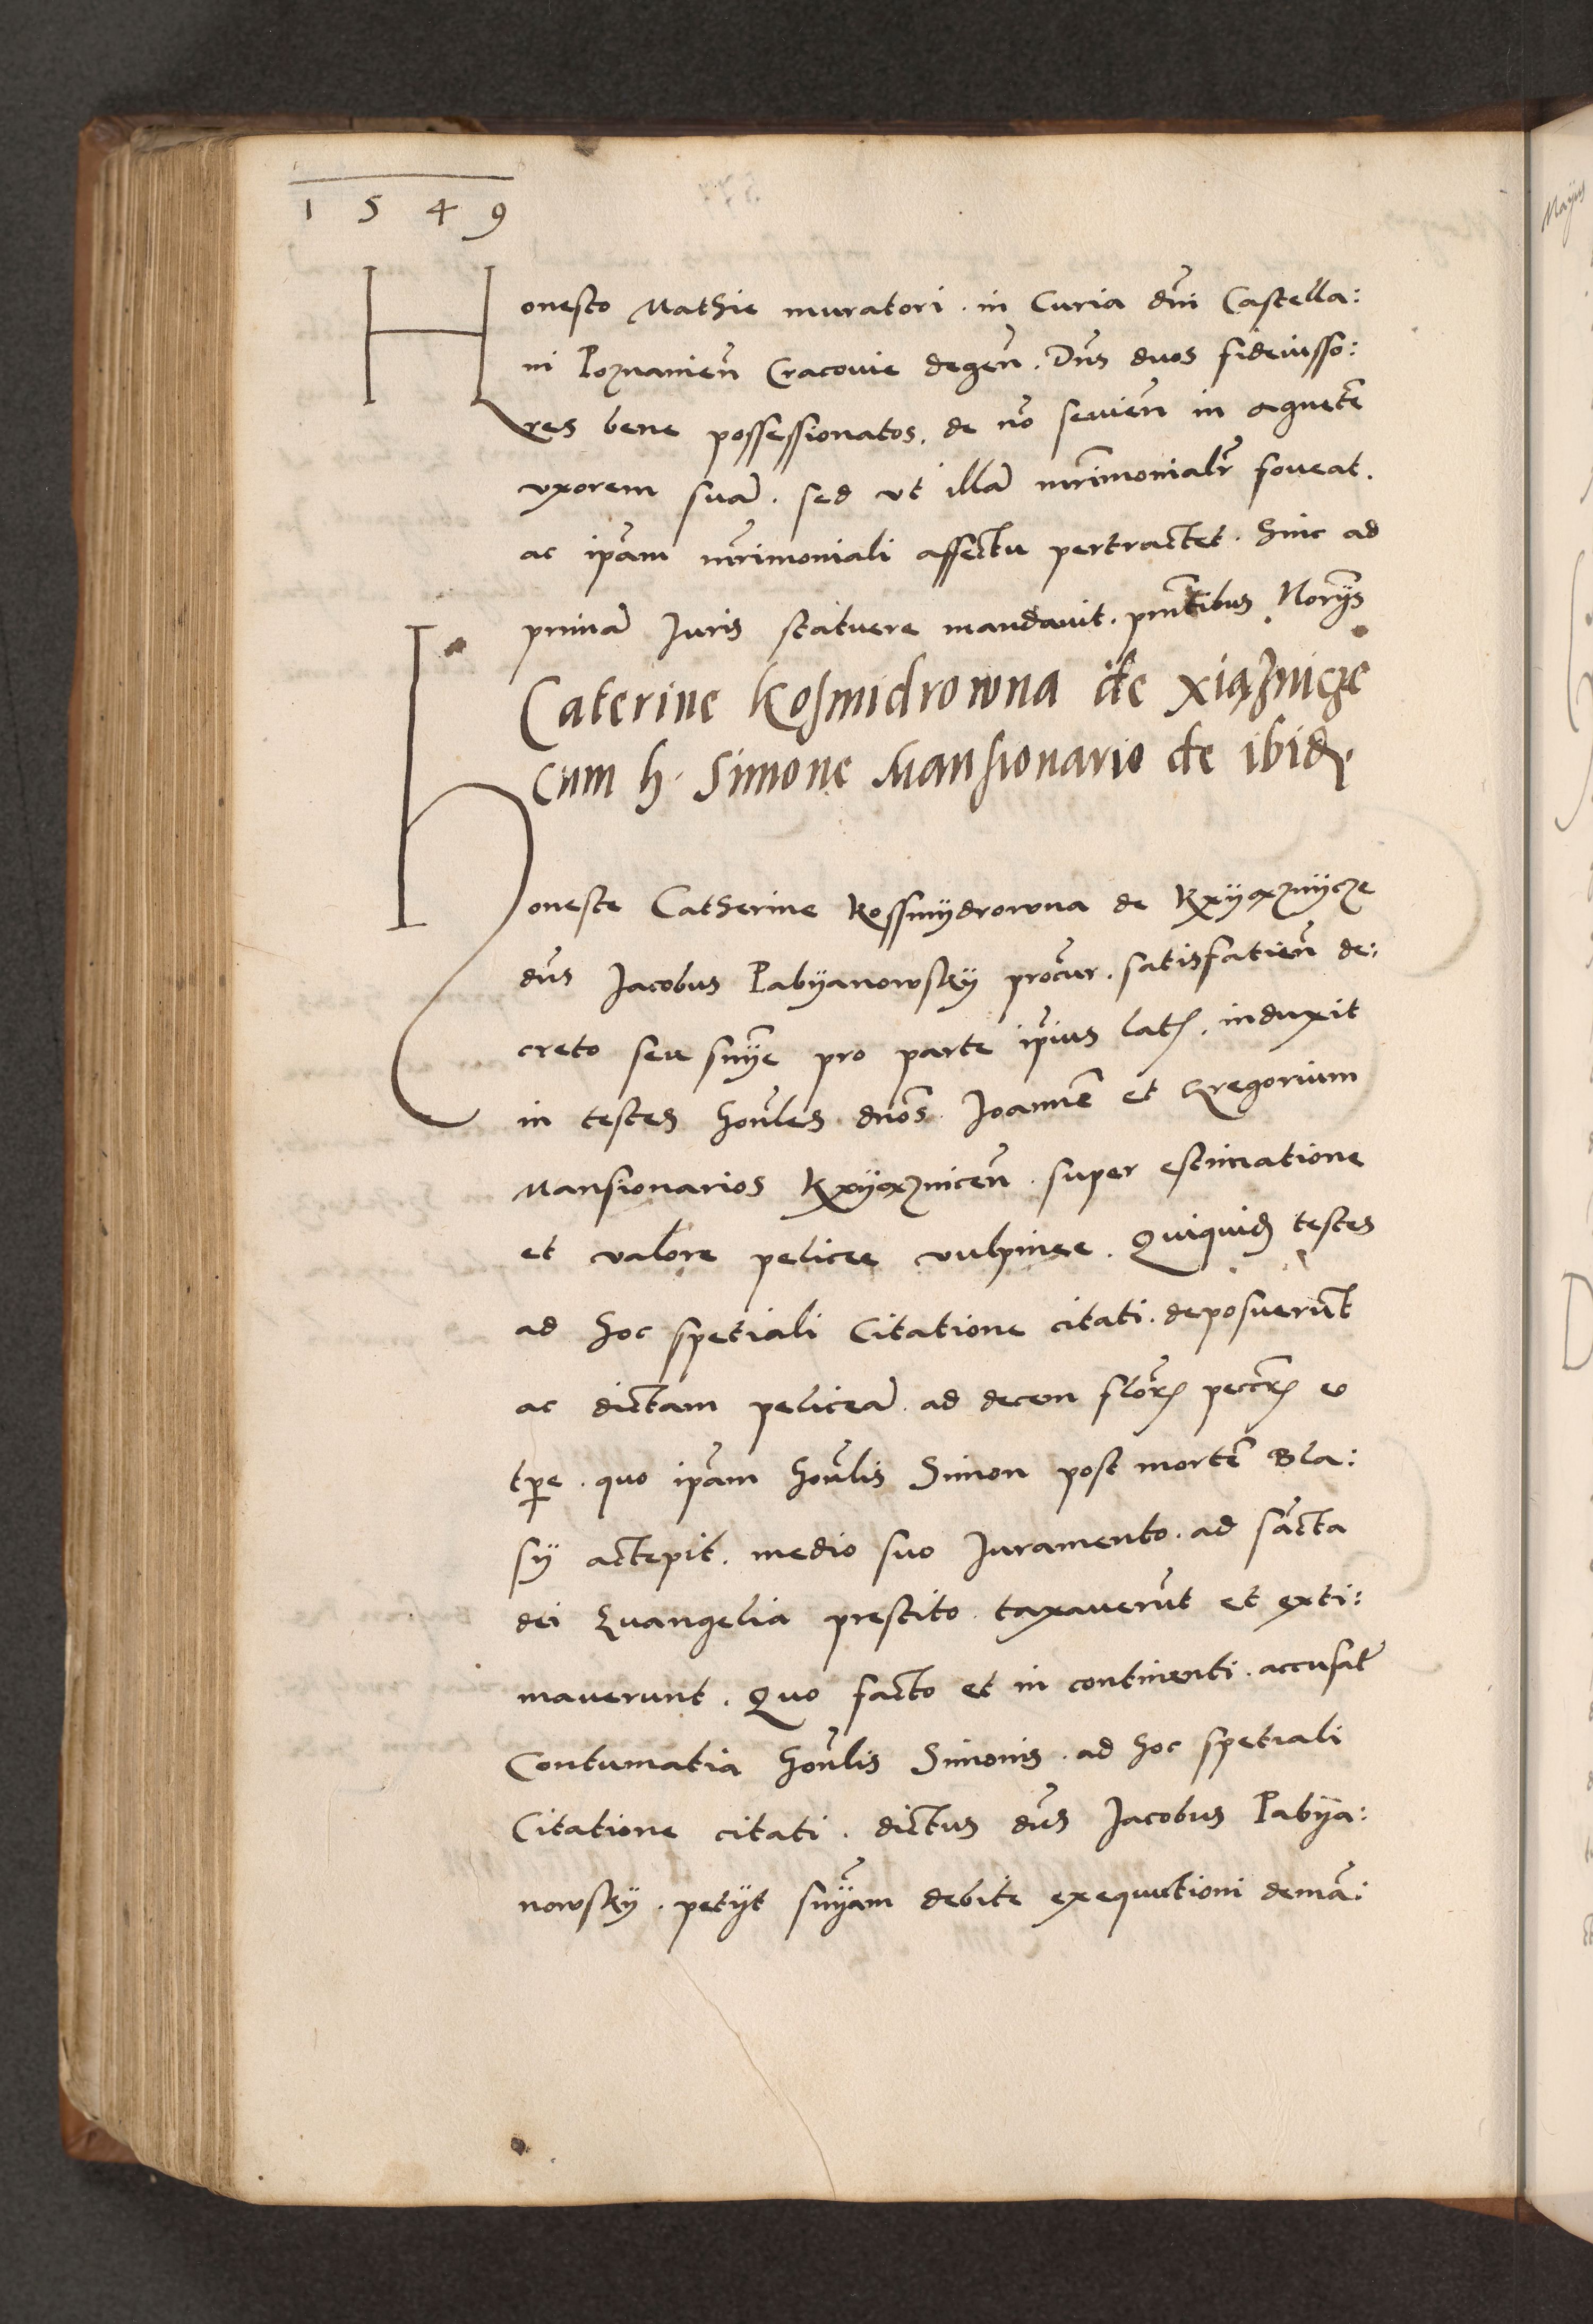 1549
Honesto Mathie muratori. in Curia dni Castella:
ni Poznanien Cracovie degen. Dns duos fideiusso:
res bene possessionatos. de no sevien in Agnete
uxorem sua. sed ut illa mrimonialr foveat.
ac ipam mrimoniali affectu pertractet. hinc ad
prima Juris statuere mandavit. pntibus Norijs
Caterine Kosmidrowna de Xiąznicze
cum h. Simone Mansionario de ibid.
Honeste Catherine Kossmydrowna de Kxyaznycze
dns Jacobus Pabyanowsky procur. satisfatien de:
creto seu snye pro parte ipius lat. induxit
in testes honles dnos Joanne et Gregorium
Mansionarios Kxyaznicen. super estimatione
et valore pelicee vulpinee. Quiquid testes
ad hoc spetiali Citatione citati. deposuerunt
ac dictam pelicea. ad decem flor peccr eo
tpe. quo ipam honlis Simon post morte Bla:
sy accepit. medio suo Juramento. ad sancta
dei Evangelia prestito. taxaverut et exti:
maverunt. Quo facto et in continenti. accusate
Contumatia honlis Simonis. ad hoc spetiali
Citatione citati. dictus dns Jacobus Pabya:
nowsky. petyt snyam debite exequutioni dema: